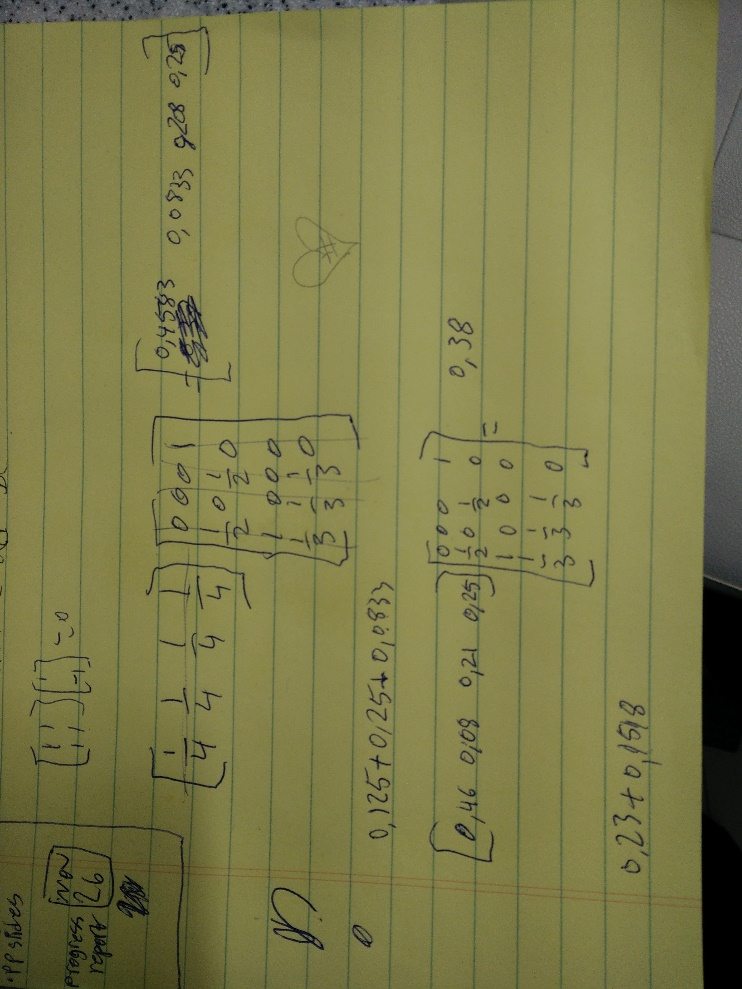 PP slides
progress report
Nov 26
[1 1; 1 1] [1; -1] = 0
[1/4 1/4 1/4 1/4] [0 0 0 1; 1/2 0 1/2 0; 1 0 0 0; 1/3 1/3 1/3 0] = [0,4583 0,0833 0,208 0,25]
0,125+0,25+0,0833
0
[0,46 0,08 0,21 0,25] [0 0 0 1; 1/2 0 1/2 0; 1 0 0 0; 1/3 1/3 1/3 0] = 0,38